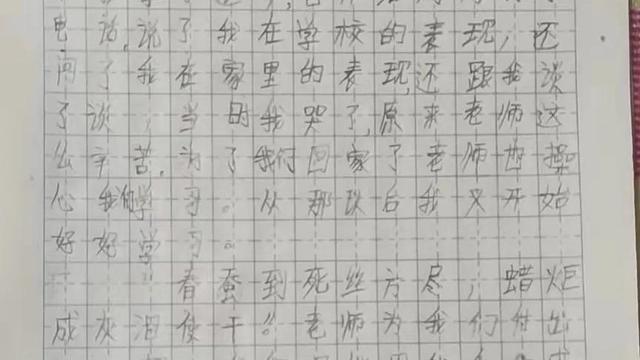 电话,说了我在学校的表现,还
问了我在家里的表现,还跟我谈
了谈,当时我哭了,原来老师这
么辛苦,为了我们回家了老师也操
心我们学习。从那以后我又开始
好好学习。
春蚕到死丝方尽,蜡炬
成灰泪使干"老师为我们付出